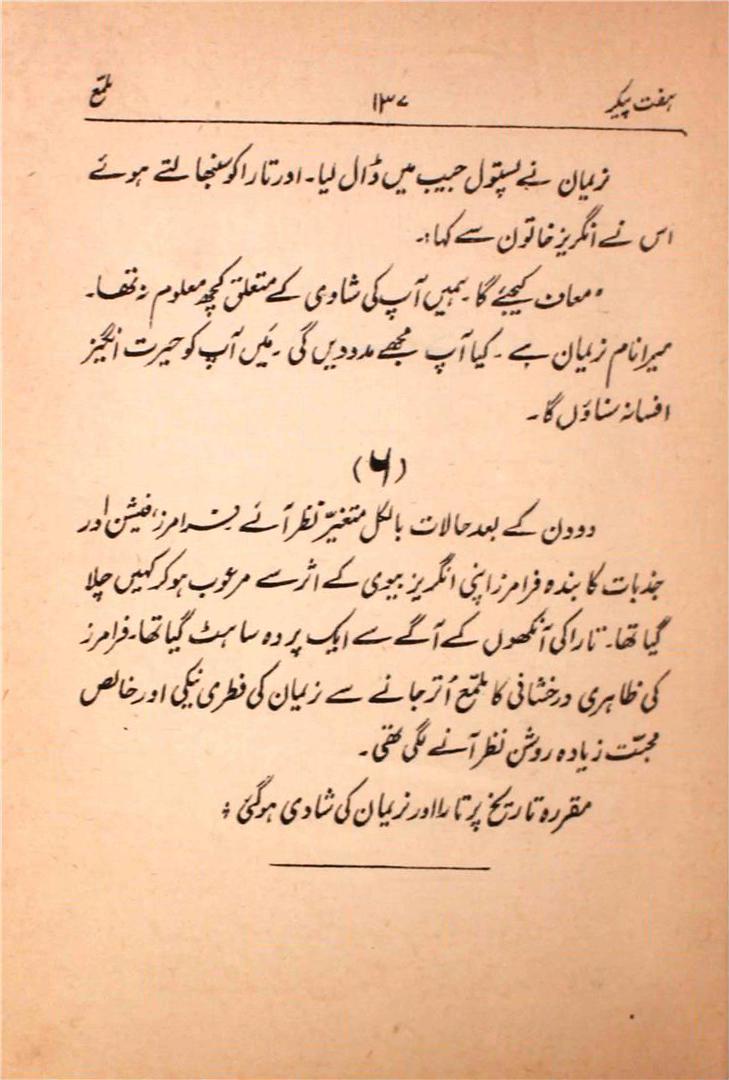 ہفت پیکر ۱۳۷ ملمّع
نریمان نے پستول جیب میں ڈال لیا۔ اور تارا کو سنبھالتے ہوئے
اس نے انگریز خاتون سے کہا:۔
"معاف کیجئے گا۔ ہمیں آپ کی شادی کے متعلق کچھ معلوم نہ تھا۔
میرا نام نریمان ہے۔ کیا آپ مجھے مدد دیں گی۔ مَیں آپ کو حیرت انگیز
افسانہ سناؤں گا۔
(۶)
دو دن کے بعد حالات بالکل متغیّر نظر آئے فرامرز، فیشن اور
جذبات کا بندہ فرامرز اپنی انگریز بیوی کے اثر سے مرعوب ہو کر کہیں چلا
گیا تھا۔ تارا کی آنکھوں کے آگے سے ایک پردہ سا ہٹ گیا تھا۔ فرامرز
کی ظاہری درخشانی کا ملمّع اُتر جانے سے نریمان کی فطری نیکی اور خالص
محبّت زیادہ روشن نظر آنے لگی تھی۔
مقررہ تاریخ پر تارا اور نریمان کی شادی ہو گئی ؛